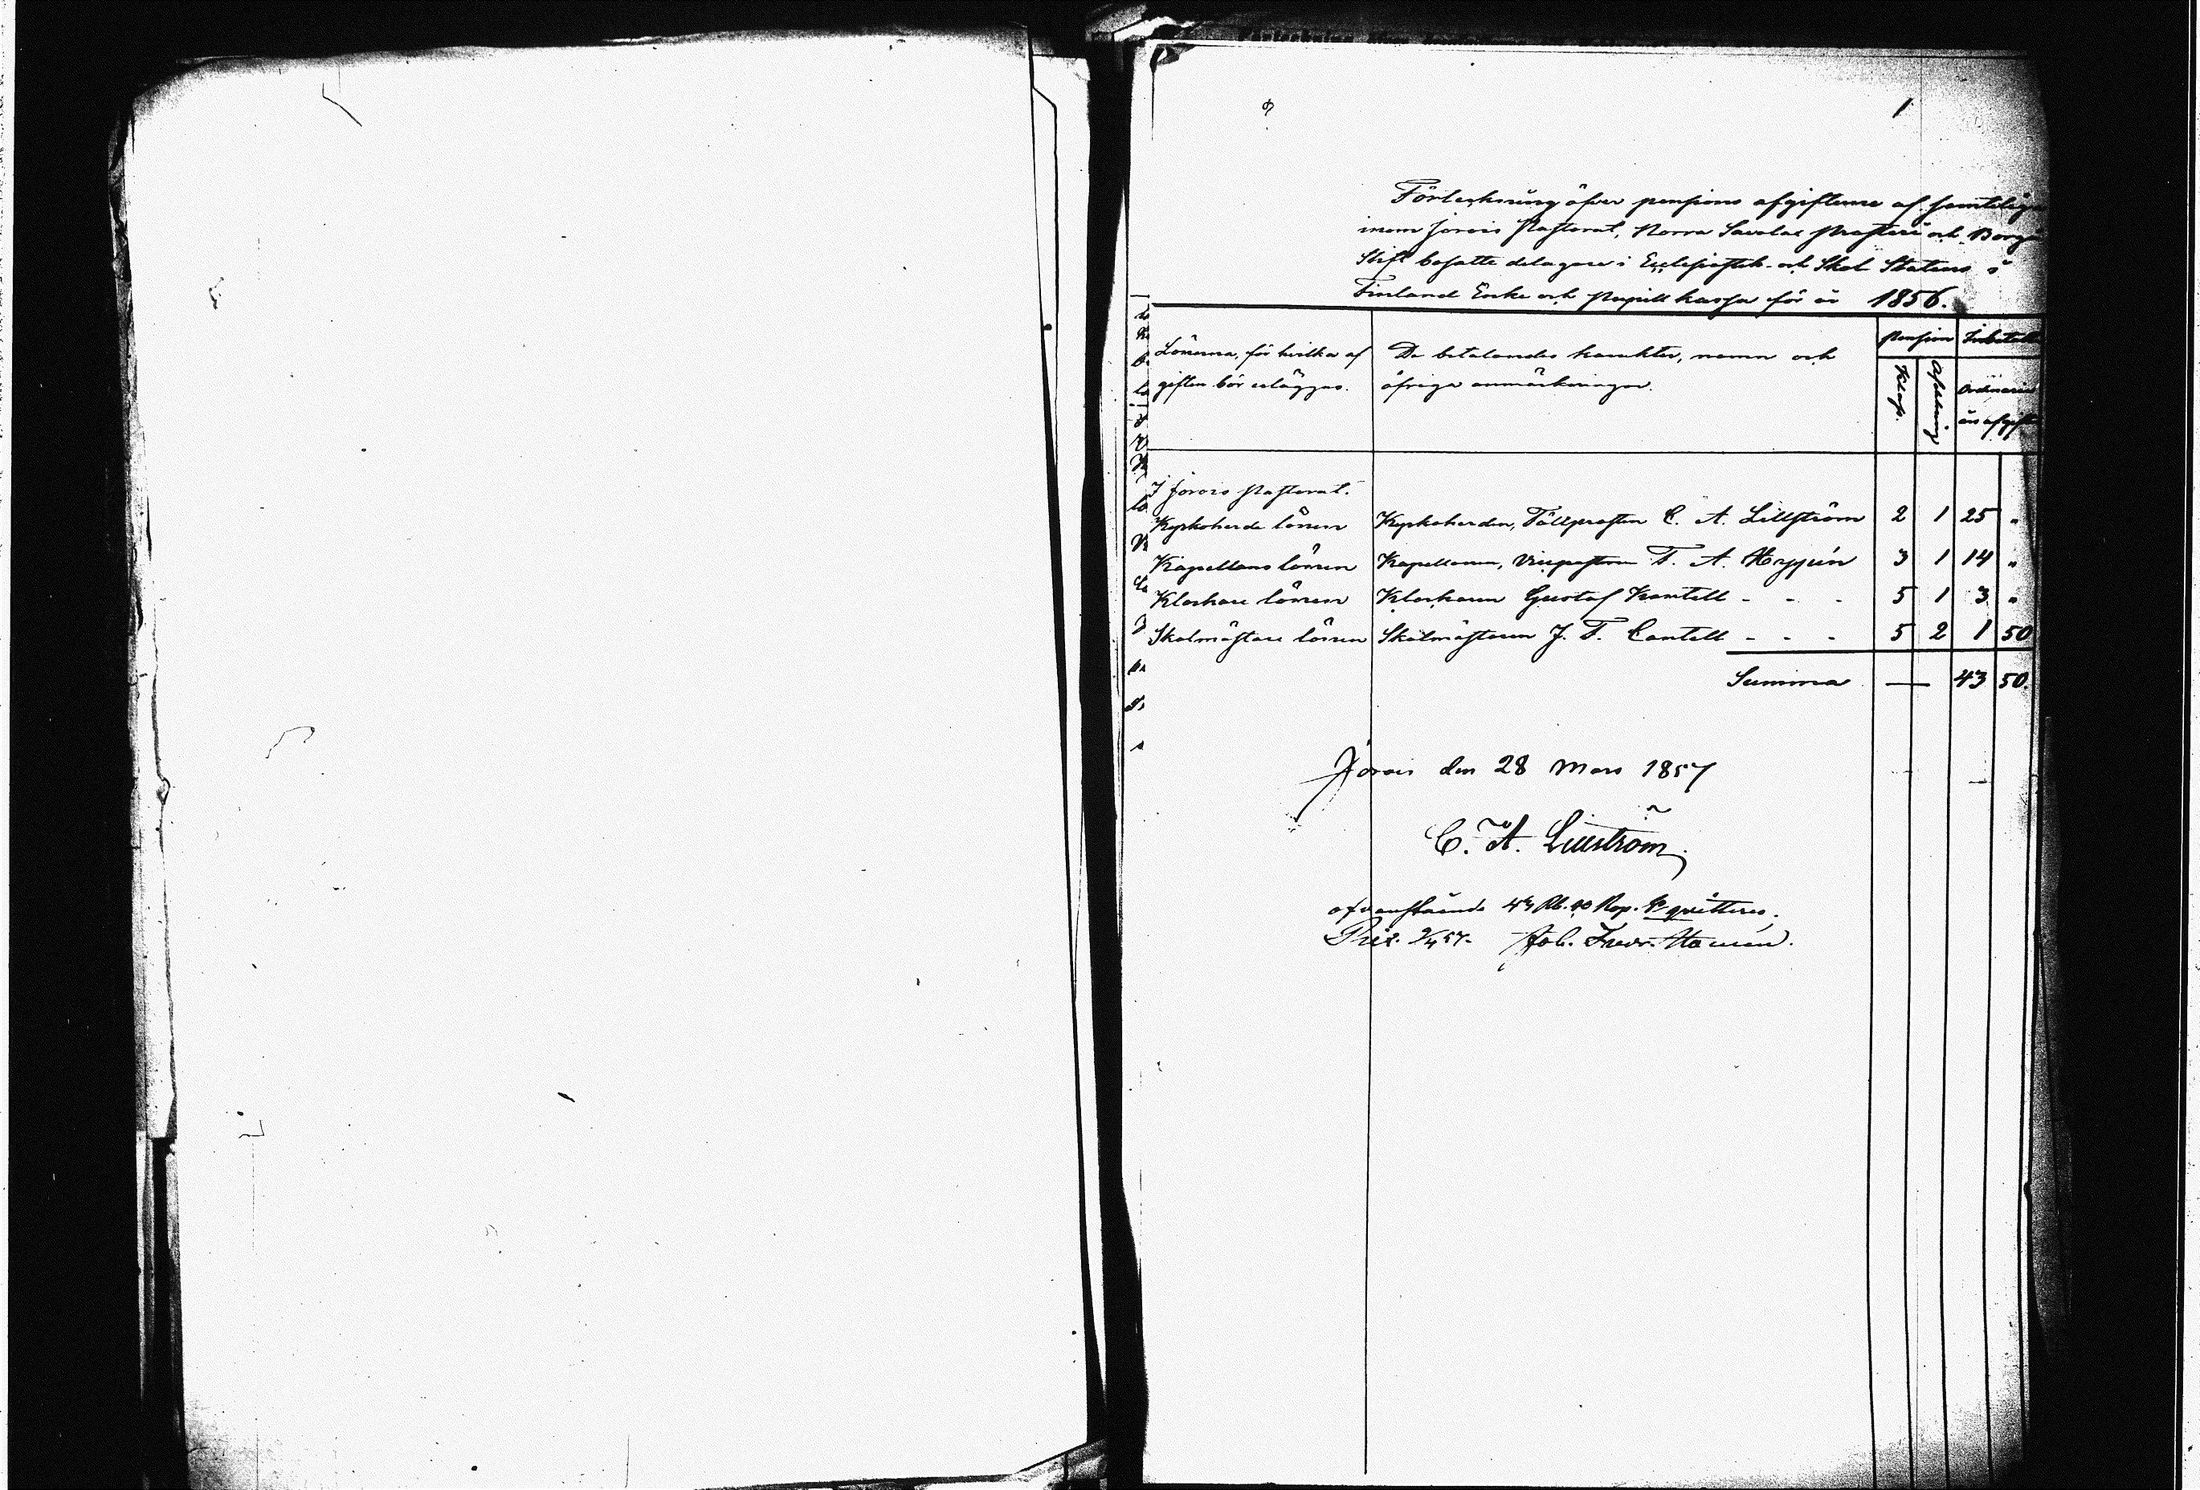 1
Förteckning öfver pensions afgifterne af samtelige
inom Jorois Pastorat, Norra Savolax Prosteri och Borgå
Stift bosatte delagare i Ecclesiastik- och Skol Statens i
Finland Enke och Pupill kassa för år 1856.
Lönerna, för hvilka af
giften bör erläggas.
De betalandes karakter, namn och
öfriga anmärkningar.
Pension
Klass.
Afdelning
Inbetalt
Ordinarie
års afgift
I Jorois Pastorat.
Kyrkoherde lönen Kyrkoherden, Fältprosten C. A. Lillström 2 1 25 "
Kapellans lönen Kapellanen, Vicepastoren F. A. Hyppén 3 1 14 "
Klockare lönen Klockaren Gustaf Kantell - - - 5 1 3 "
Skolmästare lönen Skolmästaren J. F. Cantell - - - 5 2 1 50
Summa — 43 50.
Jorois den 28 Mars 1857
C. A. Lillström
ofvanstående 43 Rb. 50 Kop. Sr qvitteres.
Joh. Fredr.